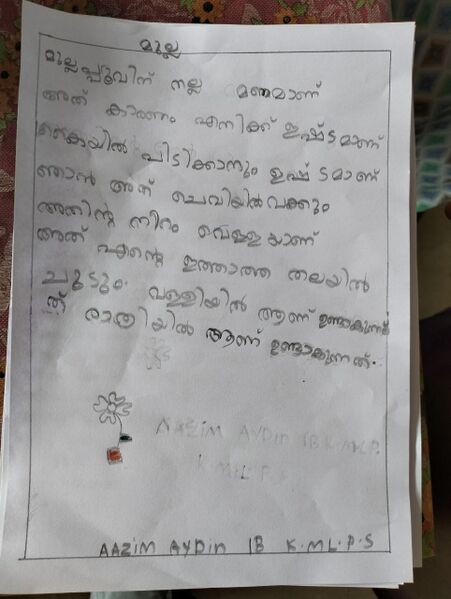 മുല്ല
മുല്ലപ്പൂവിന് നല്ല മണമാണ്
അത് കാരണം എനിക്ക് ഇഷ്ടമാണ്
കൈയിൽ പിടിക്കാനും ഇഷ്ടമാണ്
ഞാൻ അത് ചെവിയിൽ വക്കും
അതിന്റെ നിറം വെള്ളയാണ്
അത് എന്റെ ഇത്താത്ത തലയിൽ
ചൂടും. വള്ളിയിൽ ആണ് ഉണ്ടാകുന്നത്
രാത്രിയിൽ ആണ് ഉണ്ടാകുന്നത്.
AAZIM AYDIN IB K.MLP.
K.MLP.S
AAZIM AYDIN IB K.ML.P.S